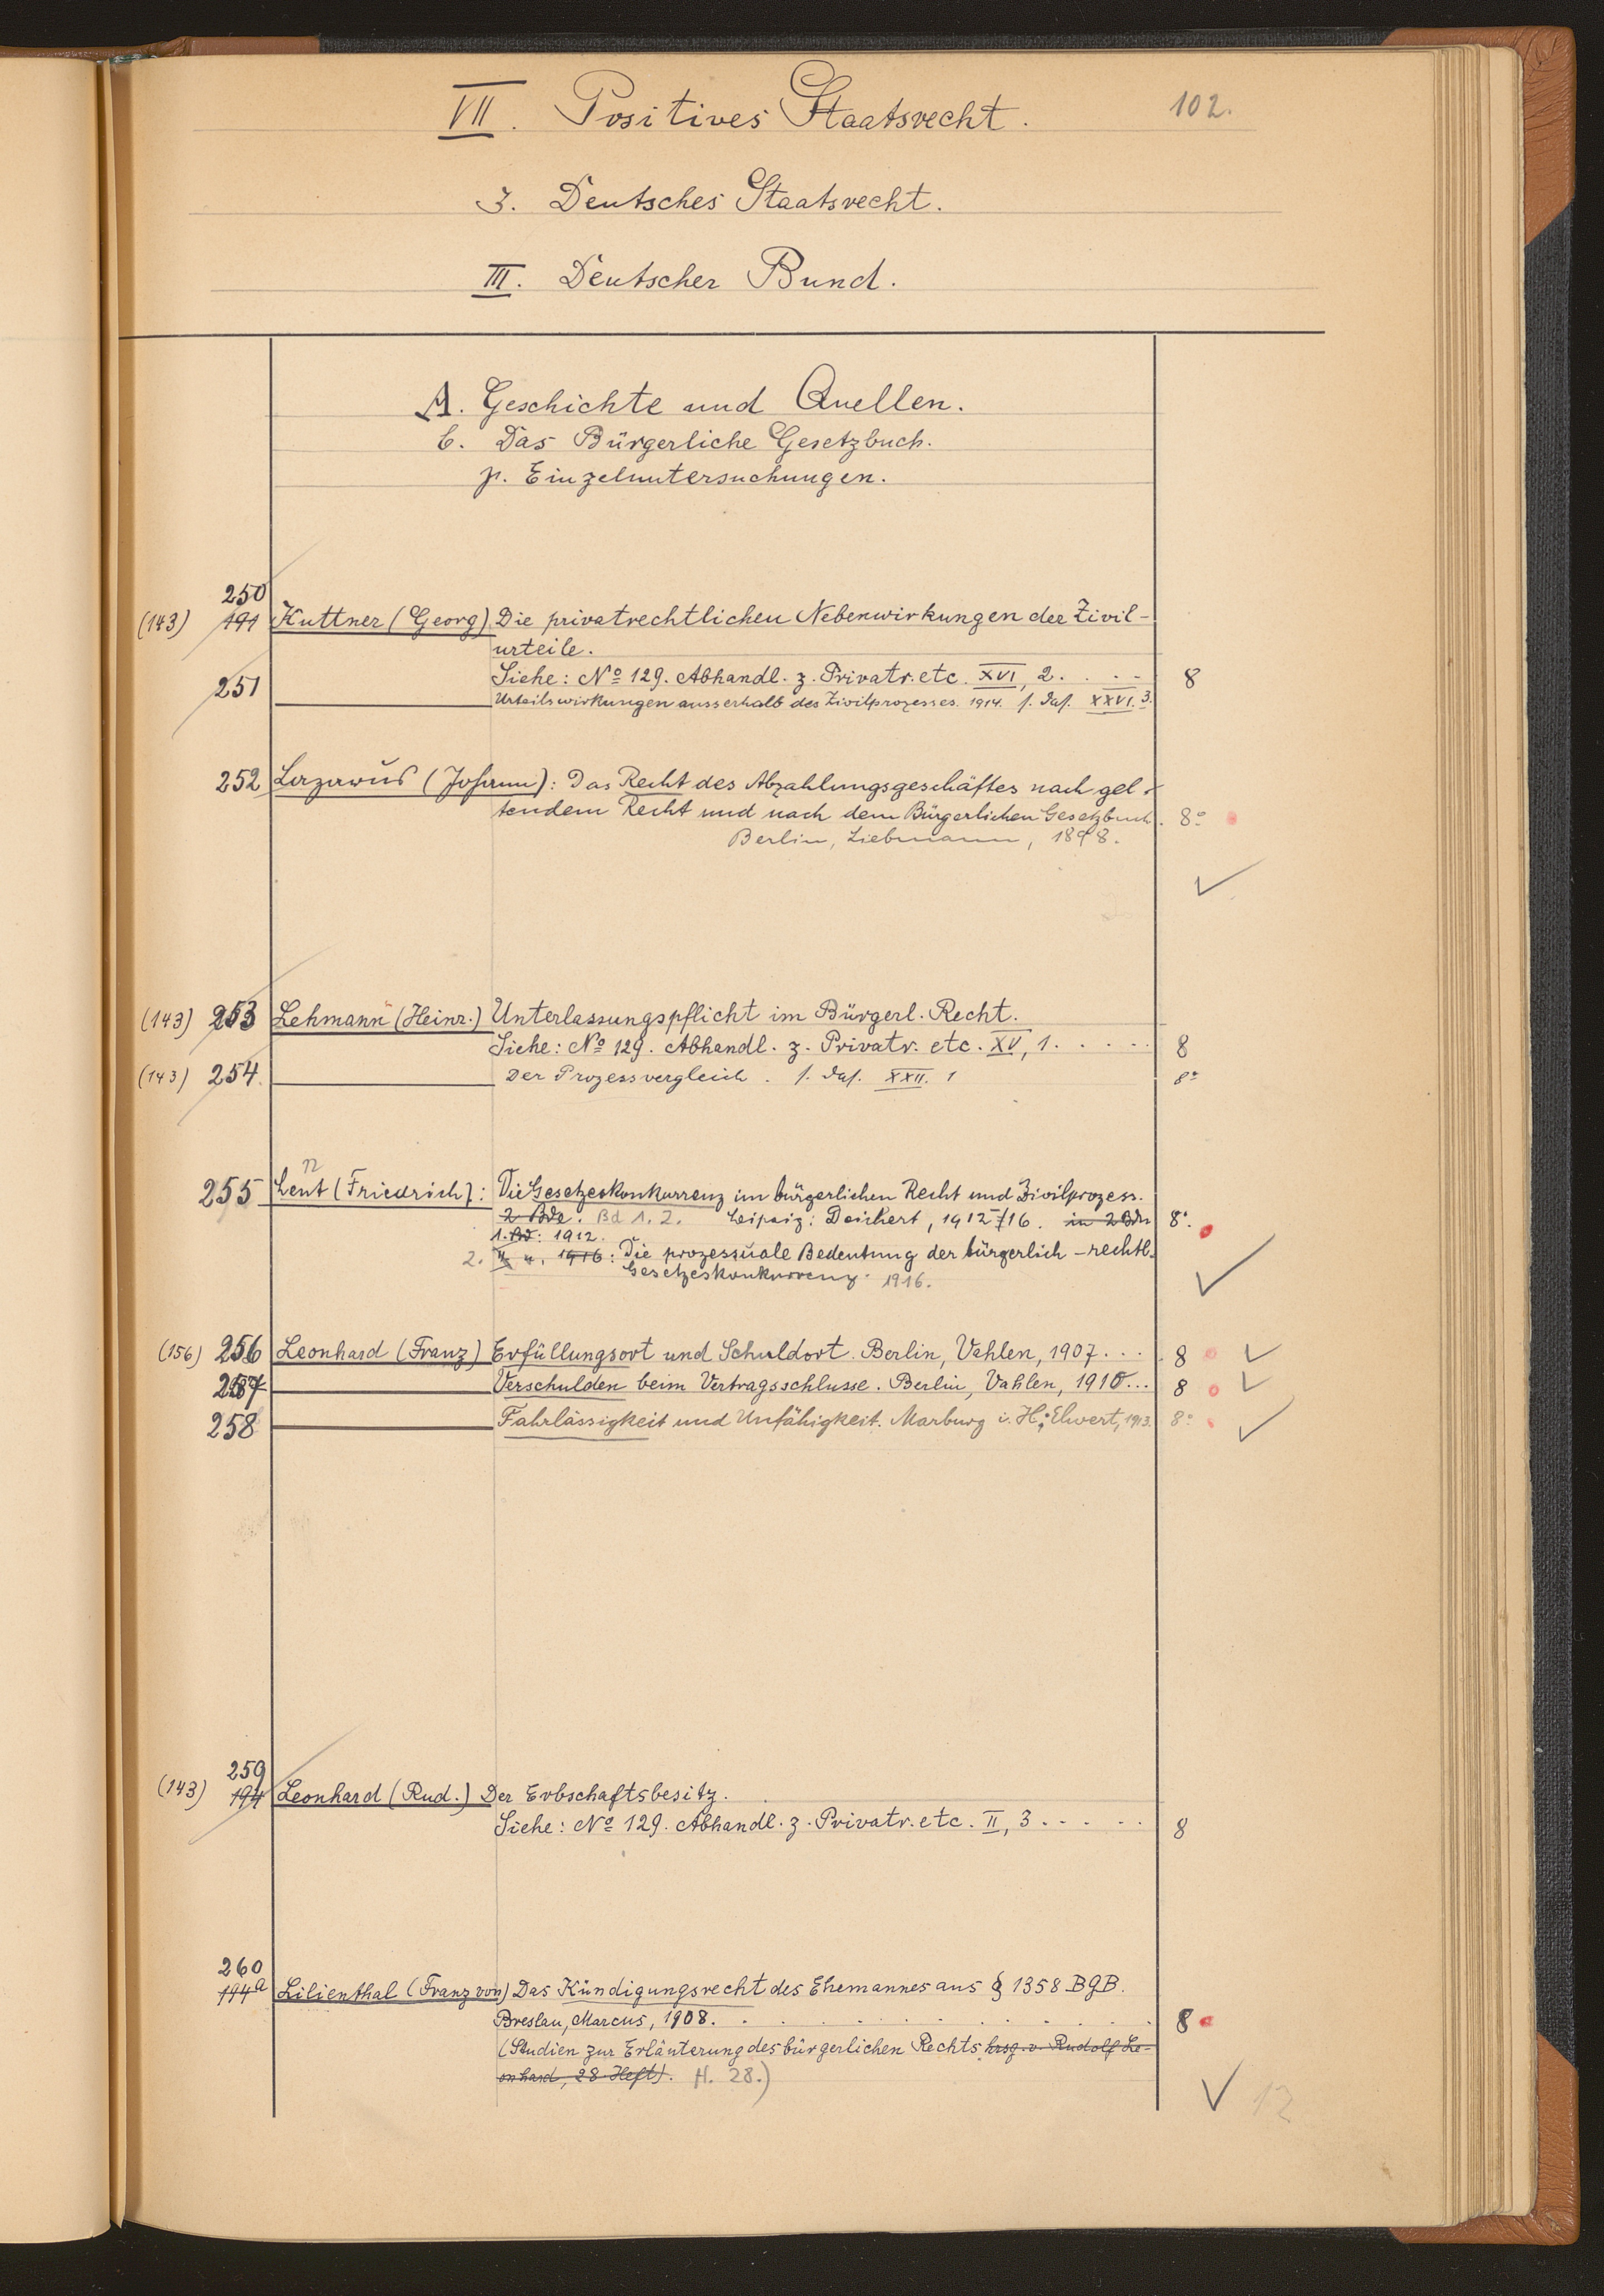 VII. Positives Staatsrecht. 102.
3. Deutsches Staatsrecht.
III. Deutscher Bund.
A. Geschichte und Quellen.
b. Das Bürgerliche Gesetzbuch.
γ. Einzeluntersuchungen.
250
(143) 191 Kuttner (Georg) Die privatrechtlichen Nebenwirkungen der Zivil-
urteile.
Siehe: No 129. Abhandl. z. Privatr. etc. XVI, 2. . . . 8
251 Urteilswirkungen ausserhalb des Zivilprozesses. 1914. s. das. XXVI. 3.
252 Lazarus (Johann): Das Recht des Abzahlungsgeschäftes nach gel-
tendem Recht und nach dem Bürgerlichen Gesetzbuch. 8°
Berlin, Liebmann, 1898.
(143) 253 Lehmann (Heinr.) Unterlassungspflicht im Bürgerl. Recht.
Siehe: No 129. Abhandl. z. Privatr. etc. XV, 1. . . . . 8
(143) 254. Der Prozessvergleich. s. das. XXII. 1 8°
255 Lent (Friedrich): Die Gesetzeskonkurrenz im bürgerlichen Recht und Zivilprozess.
2 Bde. Bd 1. 2. Leipzig: Deichert, 1912/16. in 2 Bdn 8°.
1. Bd: 1912.
2. II. ". 1916: Die prozessuale Bedeutung der bürgerlich-rechtl.
Gesetzeskonkurrenz. 1916.
(156) 256 Leonhard (Franz) Erfüllungsort und Schuldort. Berlin, Vahlen, 1907. . . . 8
257 Verschulden beim Vertragsschlusse. Berlin, Vahlen, 1910. . . 8
258 Fahrlässigkeit und Unfähigkeit. Marburg i. H.: Elwert, 1913. 8°
259
(143) 194 Leonhard (Rud.) Der Erbschaftsbesitz.
Siehe: No 129. Abhandl. z. Privatr. etc. II, 3 . . . . . 8
260
194a Lilienthal (Franz von) Das Kündigungsrecht des Ehemannes aus § 1358 BGB.
Breslau, Marcus, 1908. . . . . . . . . 8
(Studien zur Erläuterung des bürgerlichen Rechts hrsg. v. Rudolf Le-
onhard, 28 Heft). H. 28.)
12